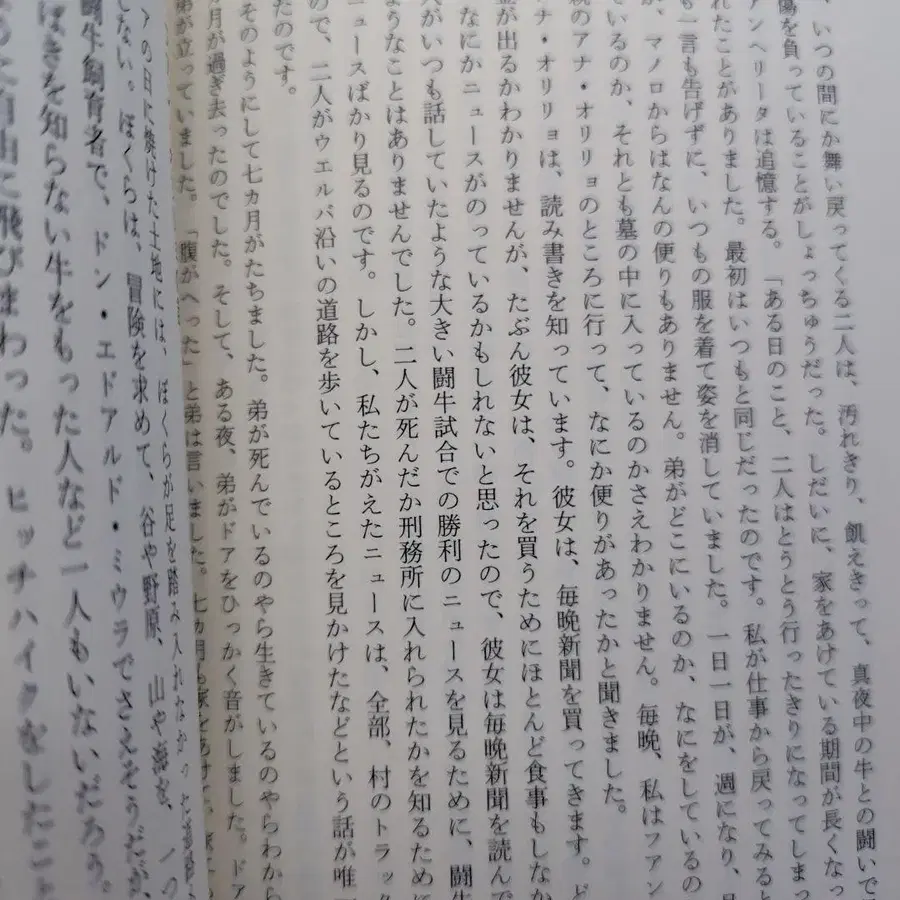 、いつの間にか舞い戻ってくる二人は、汚れきり、飢えきって、真夜中の牛との闘いで
傷を負っていることがしょっちゅうだった。しだいに、家をあけている期間が長くなっ
アンヘリータは追憶する。「ある日のこと、二人はとうとう行ったきりになってしまっ
れたことがありました。最初はいつもと同じだったのです。私が仕事から戻ってみると
も一言も告げずに、いつもの服を着て姿を消していました。一日一日が、週になり、月
が、マノロからはなんの便りもありません。弟がどこにいるのか、なにをしているの
ているのか、それとも墓の中に入っているのかさえわかりません。毎晩、私はファン
親のアナ・オリリョのところに行って、なにか便りがあったかと聞きました。
ナ・オリリョは、読み書きを知っています。彼女は、毎晩新聞を買ってきます。ど
金が出るかわかりませんが、たぶん彼女は、それを買うためにほとんど食事もしなか
なにかニュースがのっているかもしれないと思ったので、彼女は毎晩新聞を読んで
人がいつも話していたような大きい闘牛試合での勝利のニュースを見るために、闘牛
ようなことはありませんでした。二人が死んだか刑務所に入れられたかを知るために
ュースばかり見るのです。しかし、私たちがえたニュースは、全部、村のトラック
ので、二人がウエルバ沿いの道路を歩いているところを見かけたなどという話が唯一
たのです。
そのようにして七ヵ月がたちました。弟が死んでいるのやら生きているのやらわから
月が過ぎ去ったのでした。そして、ある夜、弟がドアをひっかく音がしました。ドア
弟が立っていました。「腹がへった」と弟は言いました。七ヵ月も家をあけて、
の日に焼けた土地には、ぼくらが足を踏み入れなかった
しない。ぼくらは、冒険を求めて、谷や野原、山や
闘牛飼育者で、ドン・エドアルド・ミウラでさえそうだが、
を知らない牛をもった人など一人もいないだろう。
自由に飛びまわった。ヒッチハイクをしたこと